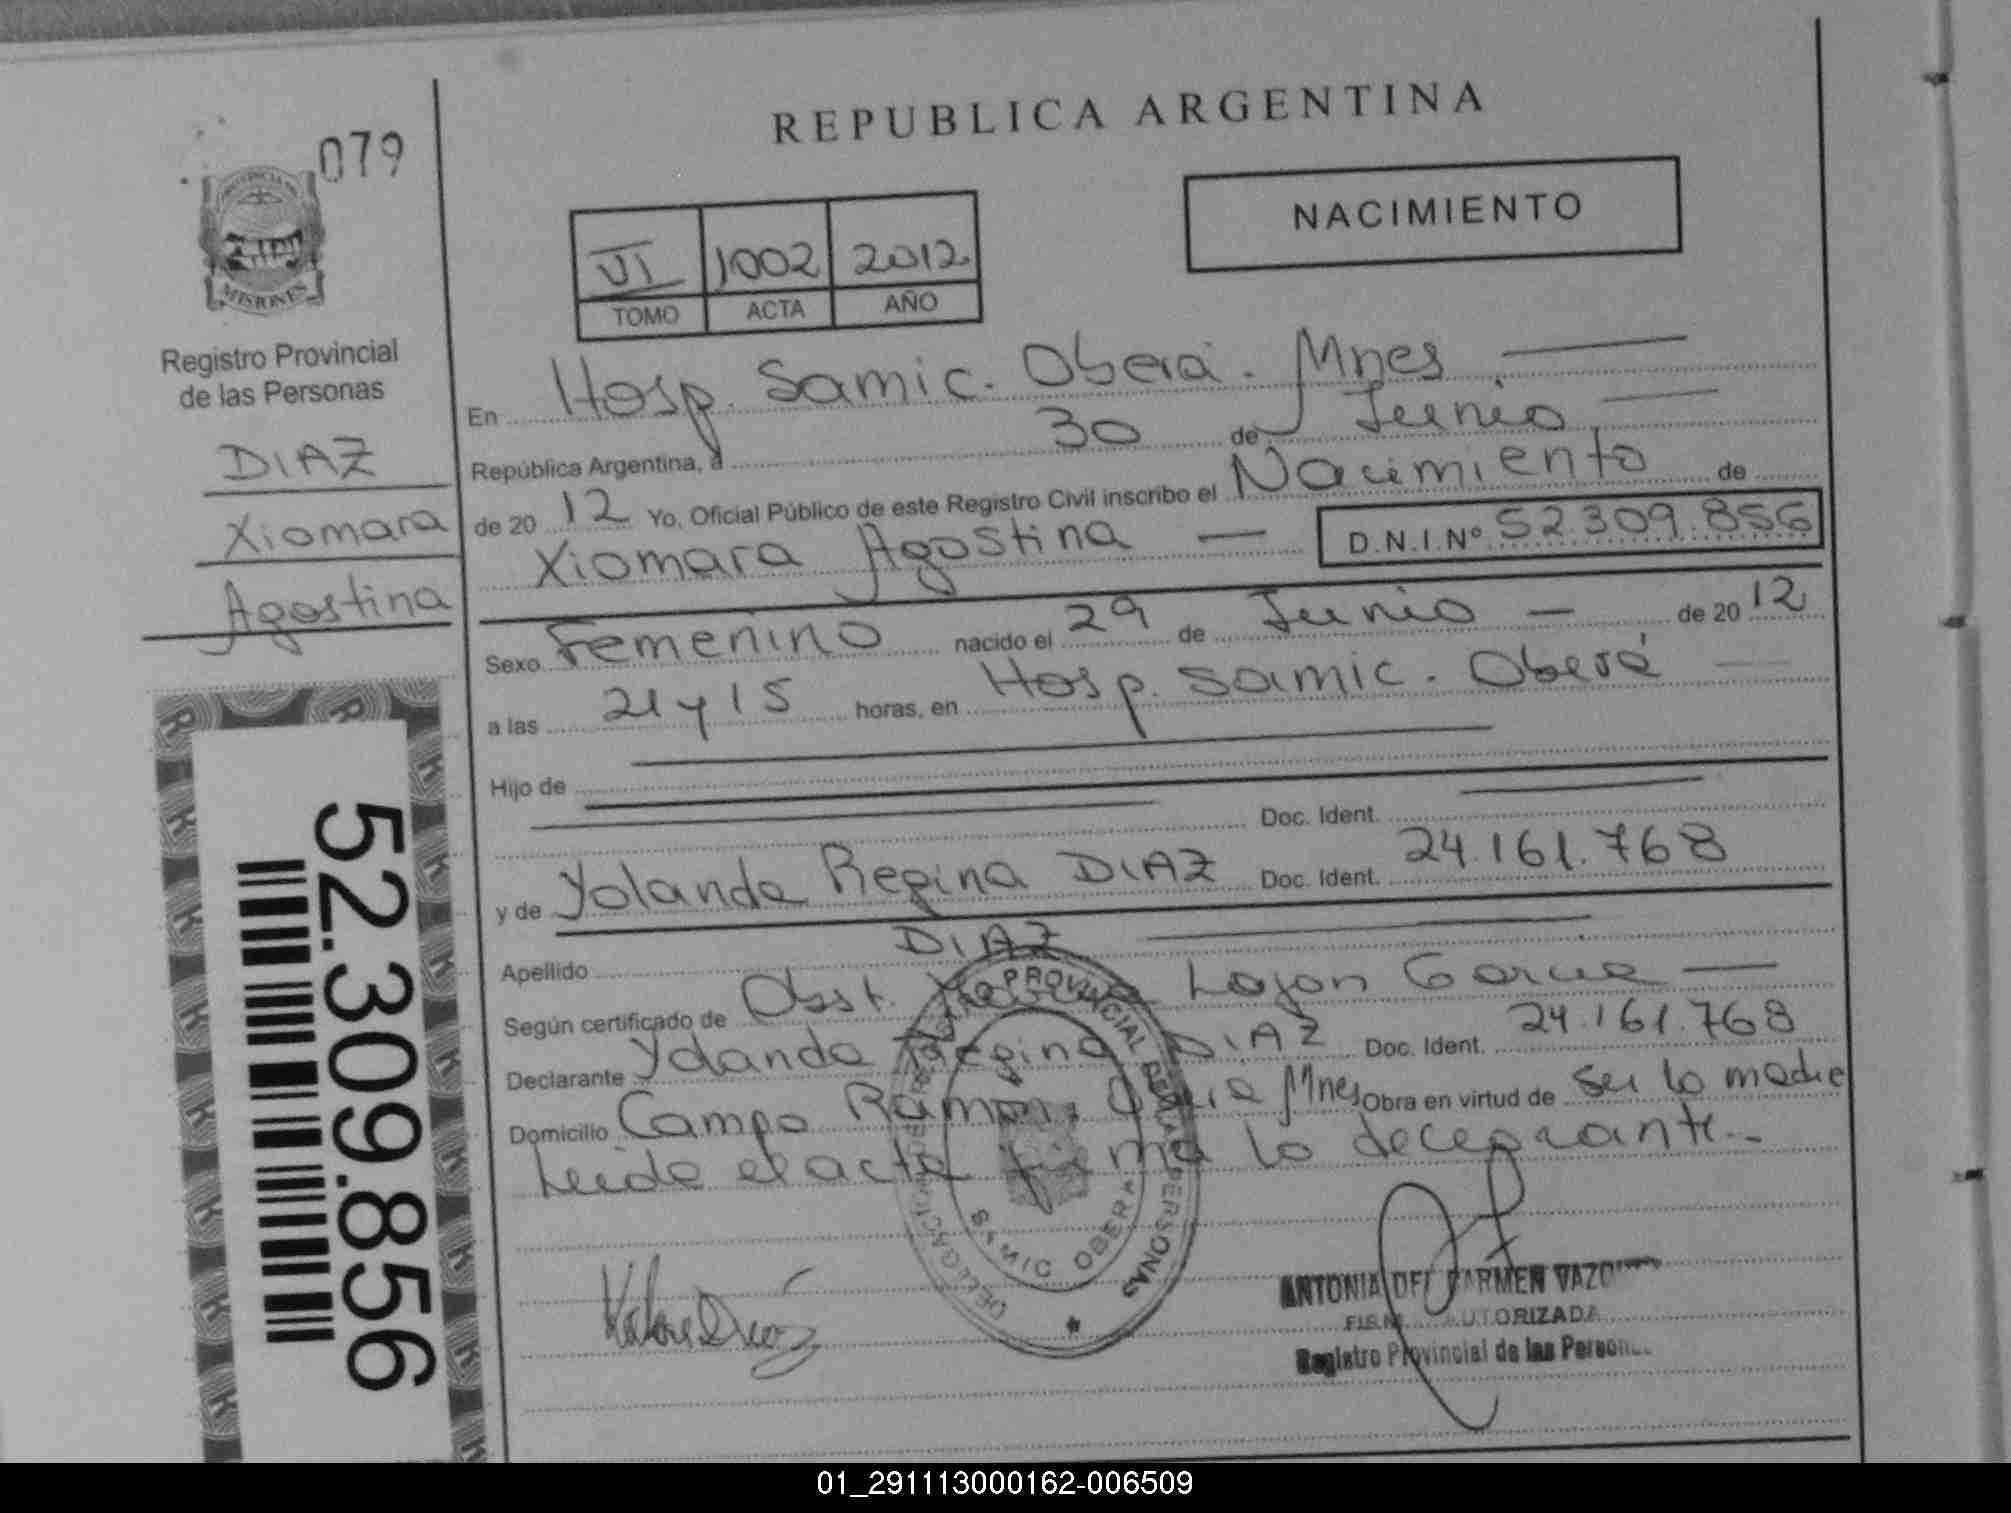 REPUBLICA ARGENTINA
079
PROVINCIA DE
MISIONES
Registro Provincial
de las Personas
DIAZ
Xiomara
Agostina
52.309.856
NACIMIENTO
VI 1002 2012
TOMO ACTA AÑO
En Hosp. Samic. Oberá. Mnes.
República Argentina, a 30 de Junio
de 20 12 Yo, Oficial Público de este Registro Civil inscribo el Nacimiento de
Xiomara Agostina D.N.I.Nº 52.309.856
Sexo Femenino nacido el 29 de Junio de 20 12
a las 21 y 15 horas, en Hosp. Samic. Oberá
Hijo de
Doc. Ident.
y de Yolanda Regina DIAZ Doc. Ident. 24.161.768
Apellido DIAZ
Según certificado de Obst. Garcia
Declarante Yolanda Regina DIAZ Doc. Ident. 24.161.768
Domicilio Campo Ramon, Mnes Obra en virtud de ser la madre
Leida el acta firma la
PROVINCIAL DE LAS PERSONAS
SAMIC OBERA
ANTONIA DEL CARMEN
AUTORIZADA
Registro Provincial de las
01_291113000162-006509